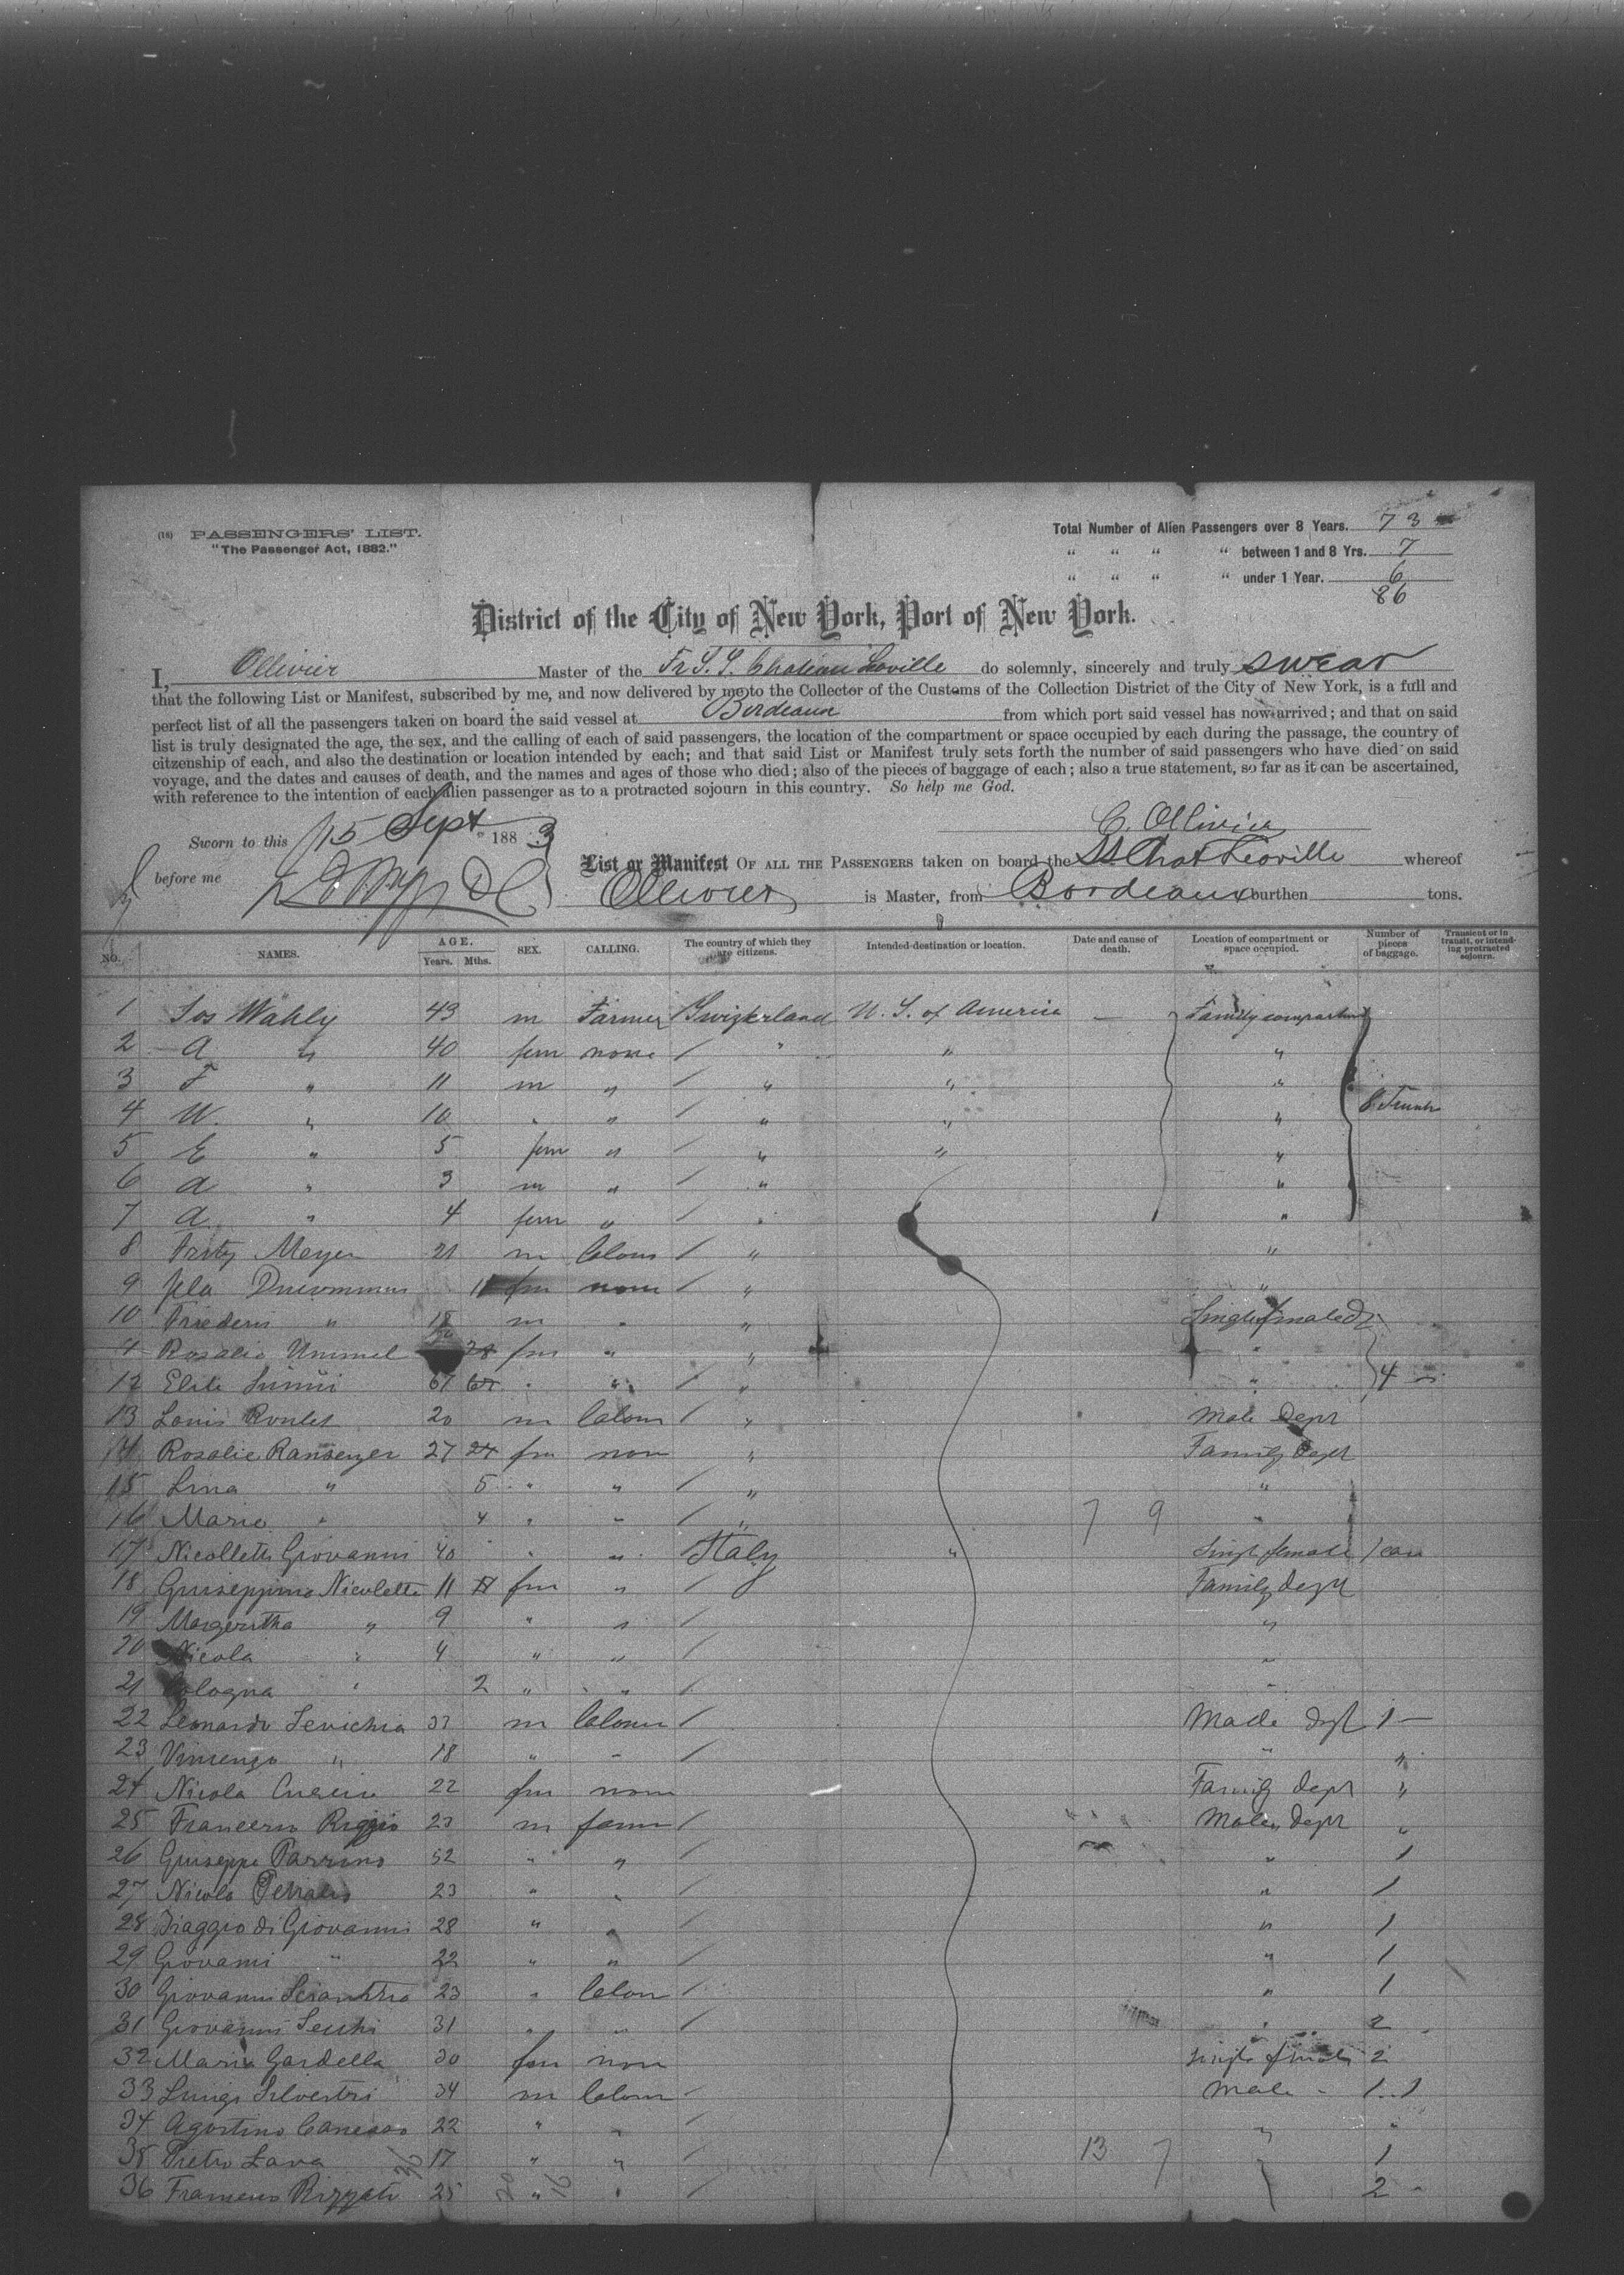 (16) PASSENGERS' LIST.
"The Passenger Act, 1882."
Total Number of Alien Passengers over 8 Years. 73
" " " " between 1 and 8 Yrs. 7
" " " " under 1 Year. 6
86
District of the City of New York, Port of New York.
I, Ollivier Master of the Fr S. S. Chateau Leoville do solemnly, sincerely and truly swear
that the following List or Manifest, subscribed by me, and now delivered by me to the Collector of the Customs of the Collection District of the City of New York, is a full and
perfect list of all the passengers taken on board the said vessel at Bordeaux from which port said vessel has now arrived; and that on said
list is truly designated the age, the sex, and the calling of each of said passengers, the location of the compartment or space occupied by each during the passage, the country of
citzenship of each, and also the destination or location intended by each; and that said List or Manifest truly sets forth the number of said passengers who have died on said
voyage, and the dates and causes of death, and the names and ages of those who died; also of the pieces of baggage of each; also a true statement, so far as it can be ascertained,
with reference to the intention of each alien passenger as to a protracted sojourn in this country. So help me God.
C. Ollivier
Sworn to this 15 Sept 1883
before me
List or Manifest OF ALL THE PASSENGERS taken on board the SS Chat Leoville whereof
Ollivier is Master, from Bordeaux burthen tons.
NO. NAMES. AGE. Years. Mths. SEX. CALLING. The country of which they are citizens. Intended destination or location. Date and cause of death. Location of compartment or space occupied. Number of pieces of baggage. Transient or in transit, or intending protracted sojourn.
1 Jos Wahly 43 m Farmer Switzerland U. S. of America — Family compartment
2 A " 40 fem none / " " "
3 F " 11 m " / " " "
4 W. " 10 " " / " " " 6 Trunks
5 E " 5 fem " / " " "
6 A " 3 m " / " "
7 A " 4 fem " / " "
8 Fritz Meyer 21 m / " "
9 11 fm none / " "
10 " 18 m " " Single female d
Rosalie 28 fm " " "
12 61 " " / " " 4
13 Louis Roulet 20 m / " Male Dept
14 Rosalie Ransenyer 27 24 fm non " Family Dept
15 Lina " 5 " " / " "
16 Marie " 4 " " / " " 7 9
17 Nicolletti Giovanni 40 " " Italy " Singl female 1 case
18 Giuseppina Nicolette 11 fm " / Family dept
19 Margeritha " 9 " " / "
20 Nicola " 4 " " / "
21 " 2 " " /
22 Leonardo m / Male dept 1 —
23 Vincenzo " 18 " " / " "
24 Nicola 22 fm non Family dept "
25 Riggio 23 m farm / Male dept "
26 Giuseppe Parrino 52 " " / " 1
27 Nicola 23 " " / " 1
28 di Giovanni 28 " " / " 1
29 Giovanni " 22 " " / " 1
30 Giovanni 23 " / " 1
31 Giovanni 31 " " / " 2
32 Maria Gardella 30 fm non single female 2
33 Luigi Silvestri 34 m / Male "
34 Agostino Canessa 22 " " / " "
35 Pietro Lava 17 " " / 13 7 " 1
36 25 " " / 2